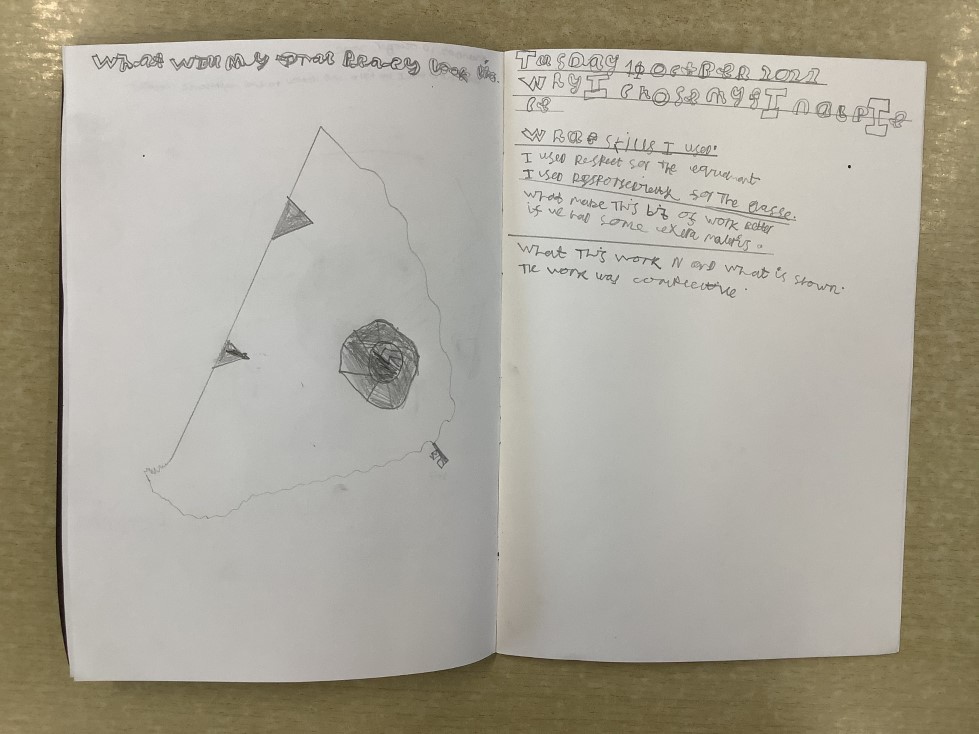 What will my look like.
Tusday 1 October 2021
Why I chose my final pie
ce
What skills I used:
I used Respect for the equument
I used for The
what make This bit of work better
if we had some extra
What This work N and what is shown.
The work was